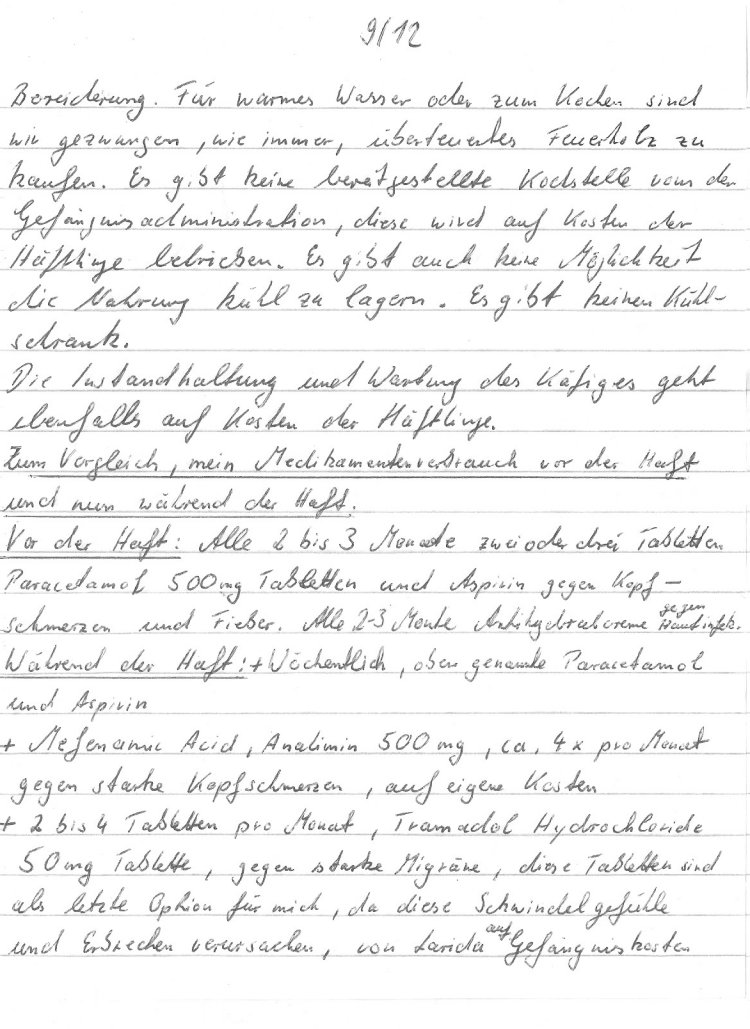 9/12
Bereicherung. Für warmes Wasser oder zum Kochen sind
wir gezwungen, wie immer, überteuertes Feuerholz zu
kaufen. Es gibt keine bereitgestellte Kochstelle von der
Gefängnisadministration, diese wird auf Kosten der
Häftlinge betrieben. Es gibt auch keine Möglichkeit
die Nahrung kühl zu lagern. Es gibt keinen Kühl-
schrank.
Die Instandhaltung und Wartung des Käfiges geht
ebenfalls auf Kosten der Häftlinge.
Zum Vergleich, mein Medikamentenverbrauch vor der Haft
und nun während der Haft.
Vor der Haft: Alle 2 bis 3 Monate zwei oder drei Tabletten
Paracetamol 500mg Tabletten und Aspirin gegen Kopf-
schmerzen und Fieber. Alle 2-3 Monte gegen Hautinfek.
Während der Haft: + Wöchentlich, oben genannte Paracetamol
und Aspirin
+ Mefenamic Acid, Analimin 500mg, ca. 4x pro Monat
gegen starke Kopfschmerzen, auf eigene Kosten
+ 2 bis 4 Tabletten pro Monat, Tramadol Hydrochloride
50mg Tablette, gegen starke Migräne, diese Tabletten sind
als letzte Option für mich, da diese Schwindelgefühle
und Erbrechen verursachen, von auf Gefängniskosten